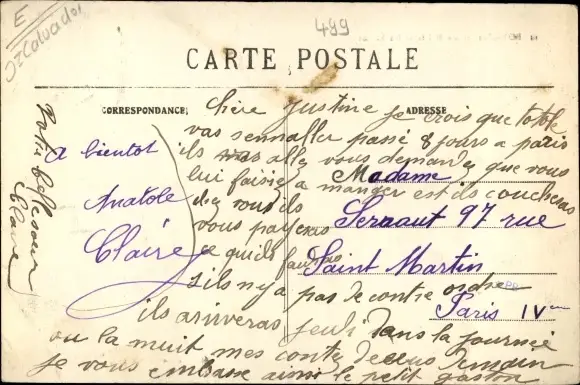 E
Calvados
499
CARTE POSTALE
CORRESPONDANCE
ADRESSE
Chère Justine je crois que totole
vas sennaller passé 8 jours a paris
ils vous demande que vous
lui faisiez a manger est ils coucheras
chez vous ils
vous payeras
ce quils fauras
sils ny a pas de contre ordre
ils ariveras jeudi dans la journée
ou la nuit mes contez dessus demain
je vous embrasse ainsi le petit
Votre belle soeur
Clara
A bientot
Anatole
Claire
Madame
Sernaut 97 rue
Saint Martin
Paris IV